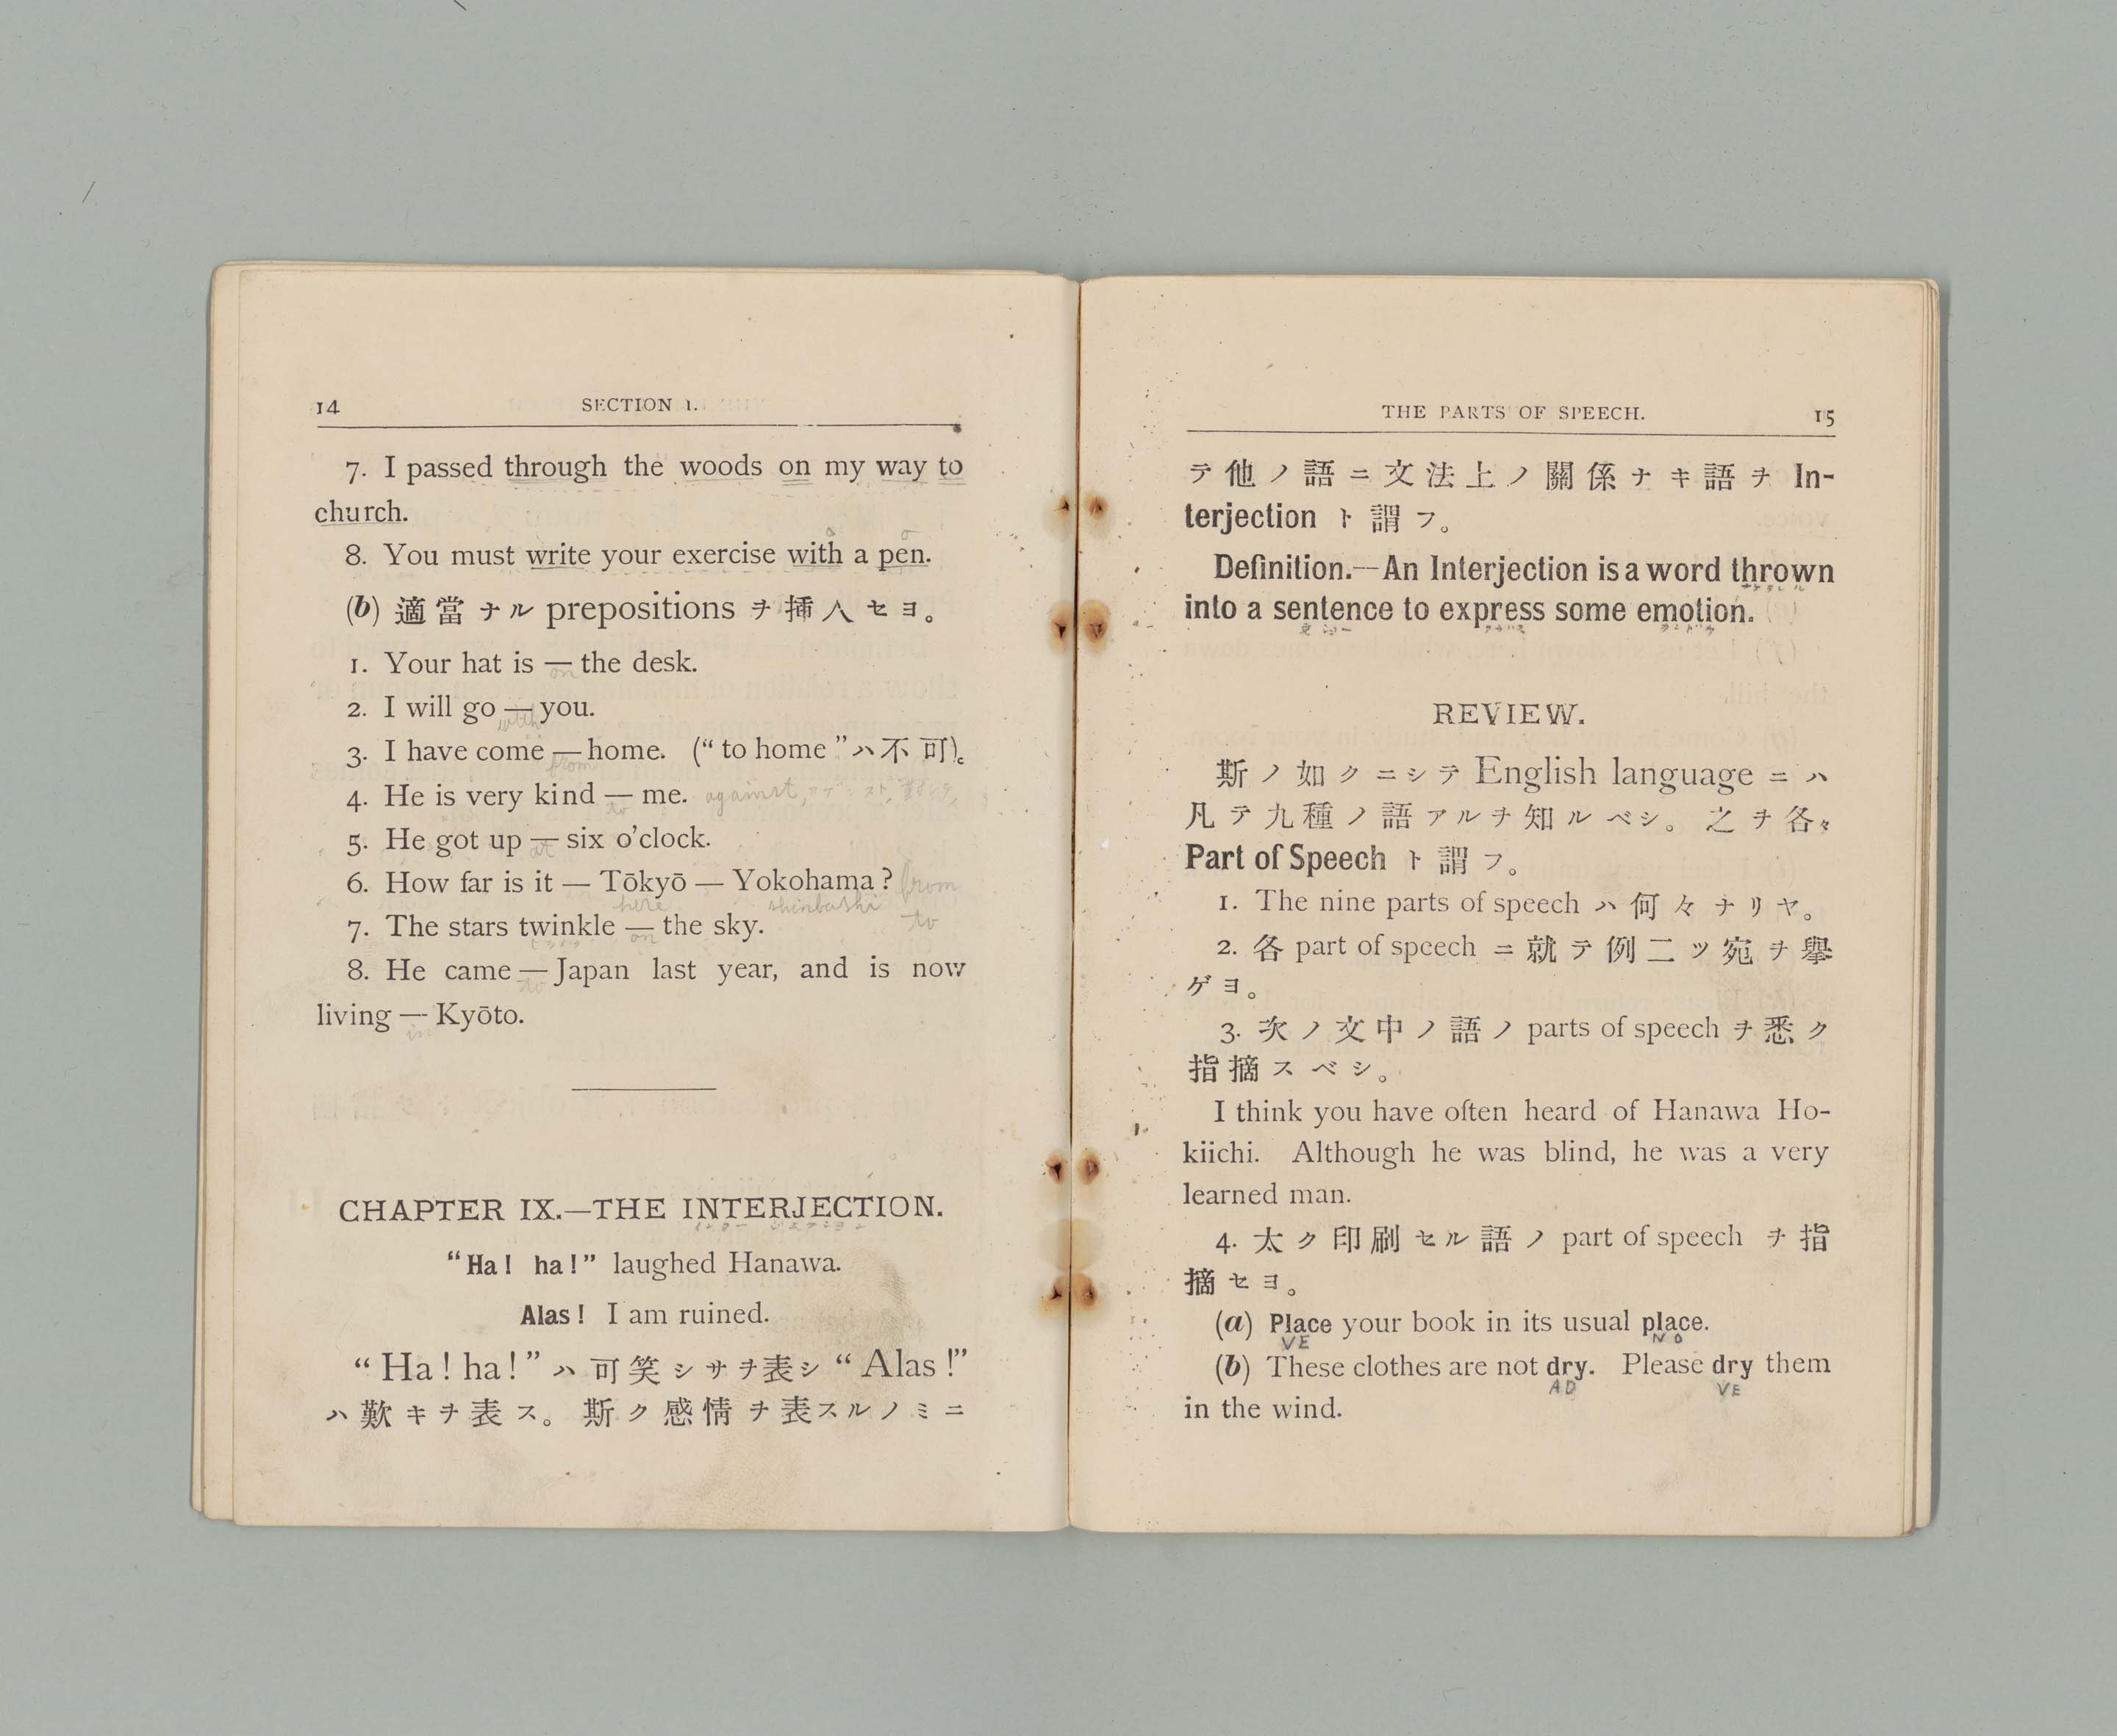 14
SECTION 1.
7. I passed through the woods on my way to
church.
8. You must write your exercise with a pen.
(b) 適當ナル prepositions ヲ挿入セヨ。
1. Your hat is — the desk.
on
2. I will go — you.
with
3. I have come — home. (“to home”ハ不可)。
from
4. He is very kind — me. against,
to
5. He got up — six o’clock.
at
6. How far is it — Tōkyō — Yokohama? from
here shinbashi to
7. The stars twinkle — the sky.
on
8. He came — Japan last year, and is now
to
living — Kyōto.
in
CHAPTER IX.—THE INTERJECTION.
インタージェクション
“Ha! ha!” laughed Hanawa.
Alas! I am ruined.
“Ha! ha!”ハ可笑シサヲ表シ“Alas!”
ハ歎キヲ表ス。斯ク感情ヲ表スルノミニ
THE PARTS OF SPEECH.
15
テ他ノ語ニ文法上ノ關係ナキ語ヲ In-
terjection ト謂フ。
Definition.—An Interjection is a word thrown
into a sentence to express some emotion.
REVIEW.
斯ノ如クニシテ English language ニハ
凡テ九種ノ語アルヲ知ルベシ。之ヲ各々
Part of Speech ト謂フ。
1. The nine parts of speech ハ何々ナリヤ。
2. 各 part of speech ニ就テ例二ツ宛ヲ擧
ゲヨ。
3. 次ノ文中ノ語ノ parts of speech ヲ悉ク
指摘スベシ。
I think you have often heard of Hanawa Ho-
kiichi. Although he was blind, he was a very
learned man.
4. 太ク印刷セル語ノ part of speech ヲ指
摘セヨ。
(a) Place your book in its usual place.
VE NO
(b) These clothes are not dry. Please dry them
AD VE
in the wind.